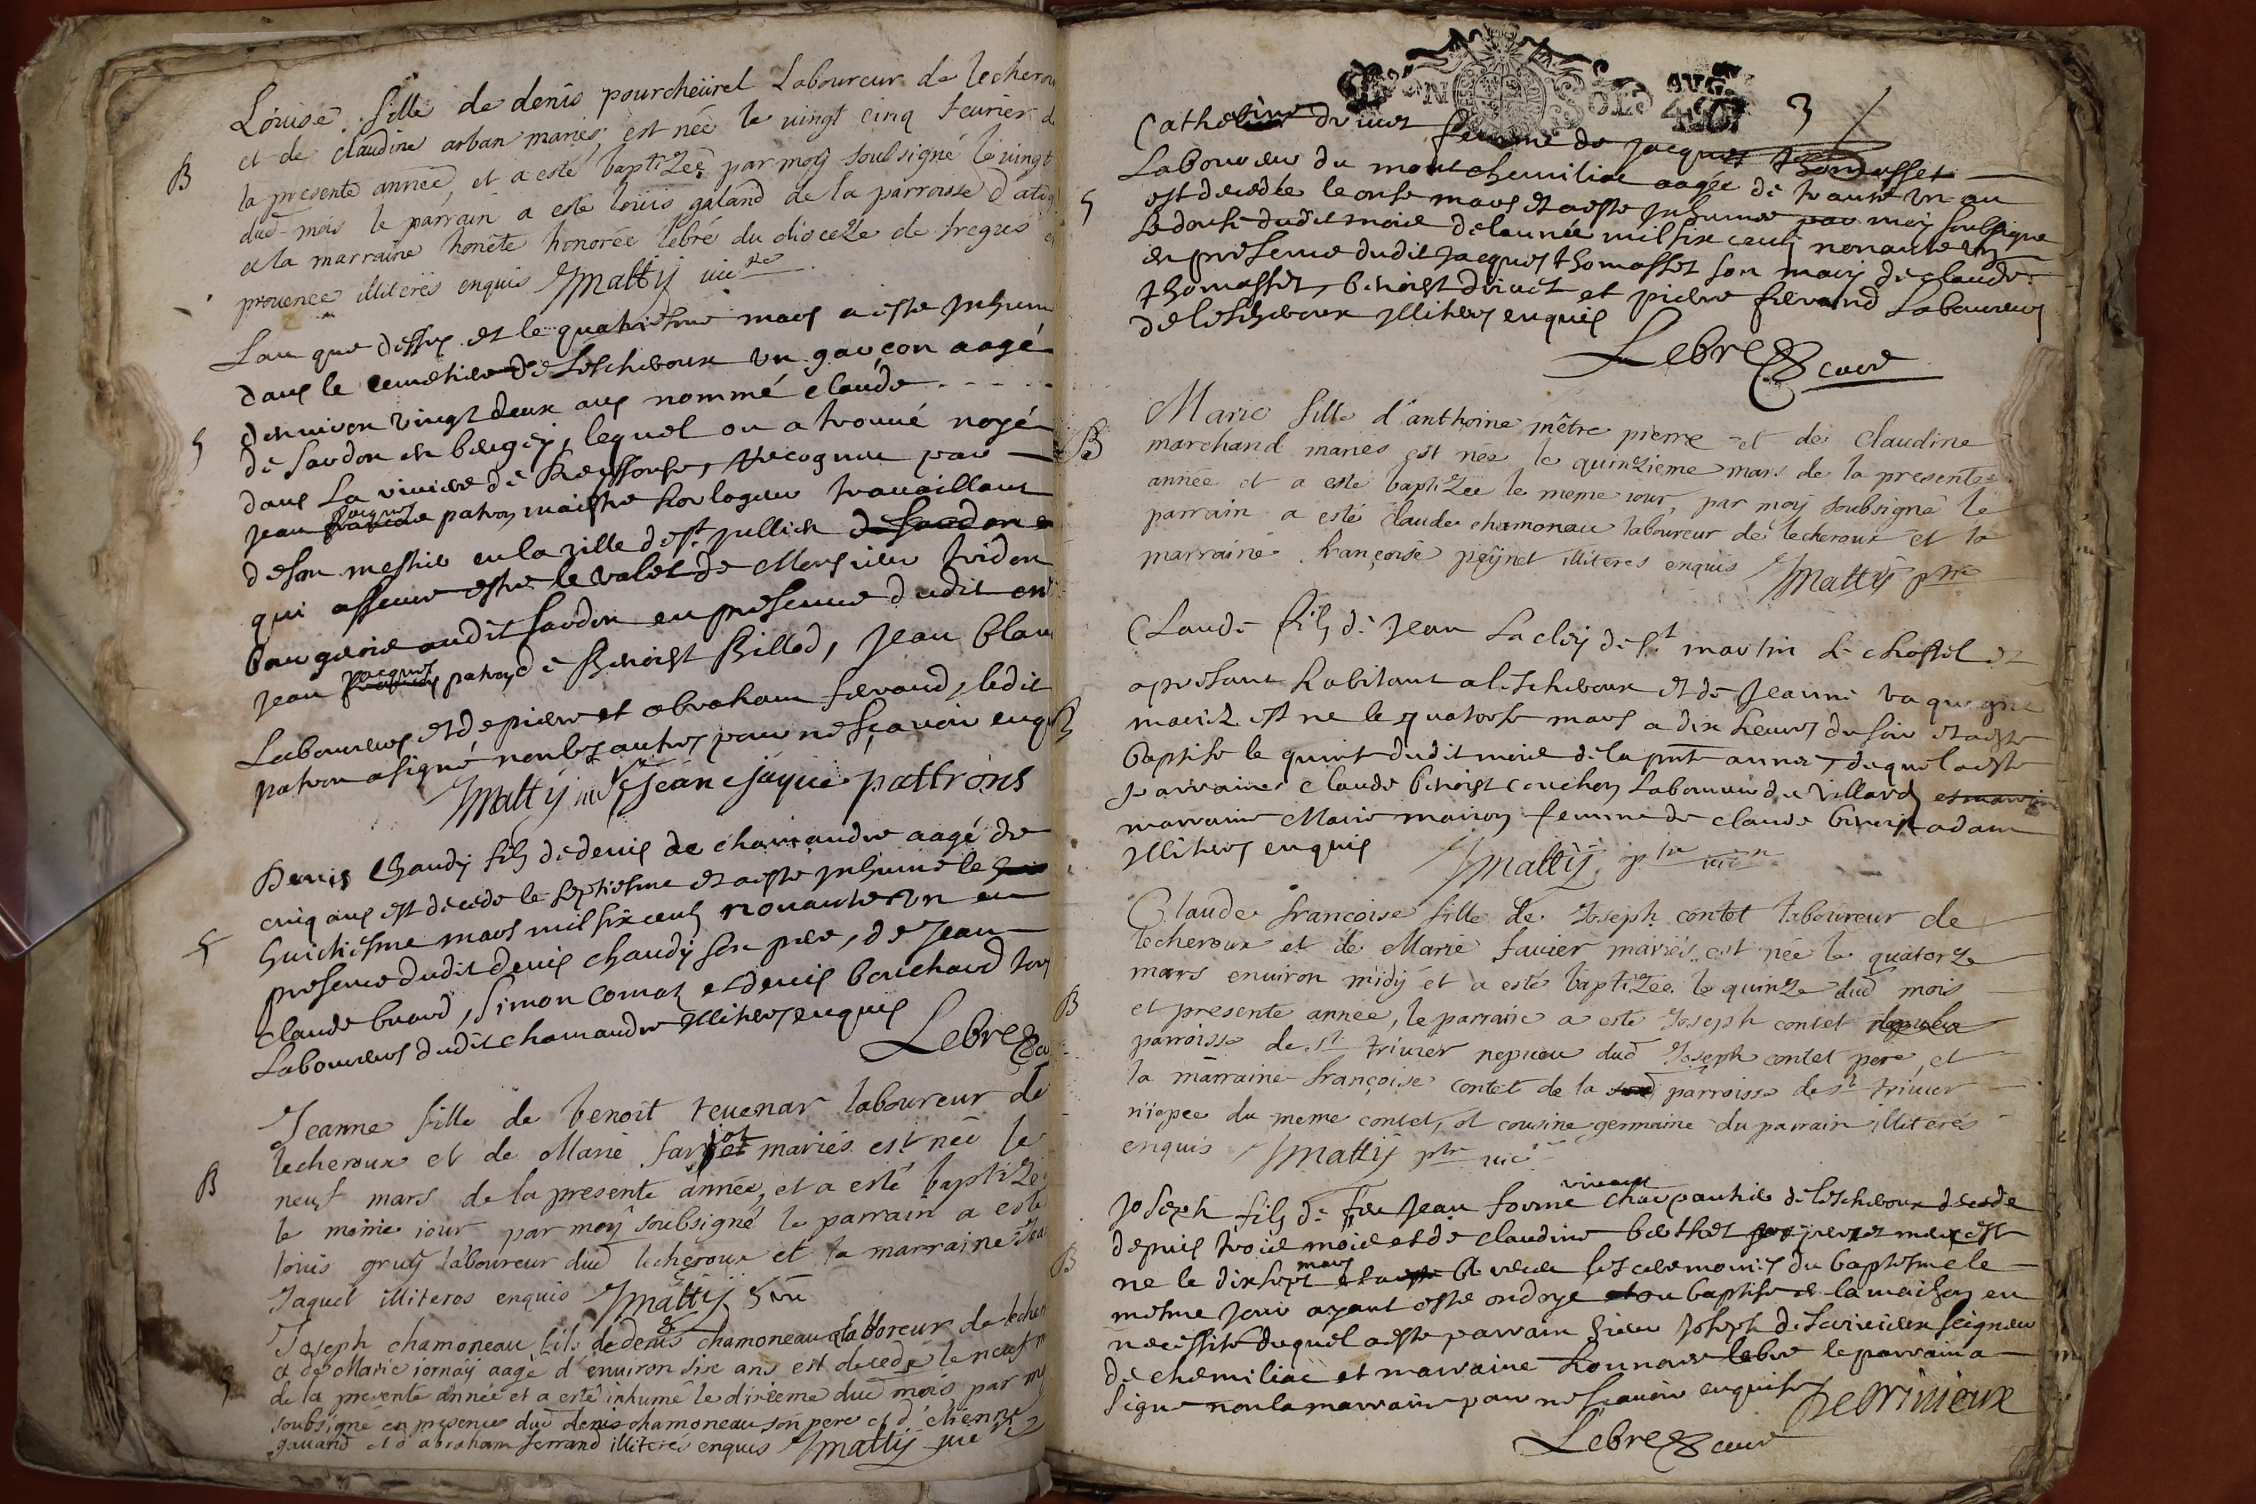 Louise fille de denis pourcheurel Laboureur de lecherou
B
et de claudine arban mariés, est née le vingt cinq feurier d
la presente année, et a esté baptizeé par moÿ soubsigné le vingt
dud mois le parrain a esté loüis galand de la parroisse d'
et la marraine honête honorée lebré du dioceze de
prouence illiterés enquis Jmattÿ vic
Lan que dessus et le quatriesme mars a esté Inhum
dans le cemetiere de Lescheroux un garçon aagé
S
denuiron vingt deux ans nommé claude
de sardon en beugey, lequel on a trouué noyé
dans La riuiere de Reyssouse, Recognu par
Jean jacques patron maistre horlogeur trauaillant
de son mestier en la ville de st jullien de sardon
qui asseure estre le valet de Monsieur tridon
bourgeois audit sardon en presence dudit
Jean jacques patron, de Benoist Billod, Jean blan
Laboureurs et de pierre et abraham feraud, ledit
patron a signé non les autres pour ne sçauoir enq
Jmattÿ vic Jean Jaque pattrons
Denis Chaudy fils de denis de chamandre aagé de
cinq ans est decede le septiesme et a esté inhumé le
S
huictiesme mars mil six cents nonante un en
presence dudit denis chaudy son pere, de Jean
claude buard, Simon comaz et denis bouchard tous
Laboureurs dudit chamandre Illiteres enquis
Lebre
Jeanne fille de benoit teuenar laboureur de
lecheroux et de Marie farjot mariés est née le
B
neuf mars de la presente année, et a esté baptizé
le même iour par moÿ soubsigné le parrain a esté
loüis gruÿ laboureur dud lecheroux et la marraine
Jaquet illiteros enquis Jmattÿ
Joseph chamoneau fils de denis chamoneau Laboreur de lecher
et de Marie iornaÿ aagé d'enuiron six ans est decedé le neuf
S
de la presente année et a esté inhumé le dixieme dud mois par m
soubsigné en presence dud denis chamoneau son pere et d'etienne
gauand et d'abraham ferrand illiterés enquis Jmattÿ vic
GEN SOLS
3
Catherine druiet femme de jacques thomasset
Laboureur du mont chemilia aagée de trante un an
S
est decedée le onse mars et a esté Inhumée par moy soubsigne
Le douse dudit mois de lannée mil six cents nonante un
en presence dudit jacques thomasset son mary de claude
thomasset, benoist druiet et pierre feraud Laboureurs
de lescheroux Illiteres enquis
Lebre cure
Marie fille d'anthoine mêtre pierre et de claudine
B
marchand mariés est née le quinzieme mars de la presente
année et a esté baptizée le meme iour, par moÿ soubsigné le
parrain a esté claude chamoneau laboureur de lecheroux et la
marraine françoise peÿnet illiteres enquis Jmattÿ ptre
Claude fils de Jean Laclëy de st martin le chastel et
a present habitant a lescheroux et de Jeanne vaquegne
B
mariés est ne le quatorse mars a dix heures du soir et a esté
baptisé le quinse dudit mois de la pnte année, duquel a esté
parrain Claude benoist couchon Laboureur du villard et marraine
marraine Marie mairon femme de claude benoist adam
Illiteres enquis Jmattÿ ptre vic
Claude francoise fille de Joseph contet laboureur de
lecheroux et de Marie fauier mariés est née le quatorze
mars enuiron midÿ et a esté baptizée le quinze dud mois
B
et presente année, le parrain a esté Joseph contet de la
parroisse de st triuier nepueu dud Joseph contet pere, et
la marraine françoise contet de la parroisse de st triuier
niepce du meme contet, et cousine germaine du parrain illiterés
enquis Jmattÿ ptre vic
Joseph fils de feu Jean forme viuant charpantier de lescheroux decede
depuis trois mois et de claudine berthet
B
ne le dix sept mars a receu les ceremonies du baptesme le
mesme jour ayant esté ondoye ou baptise a la maison en
necessité duquel a esté parrain sieur Joseph de seriuieux seigneur
de chemiliac et marraine honnore lebre le parrain a
signe non la marraine pour ne scauoir enquise Deseriuieux
Lebre cure